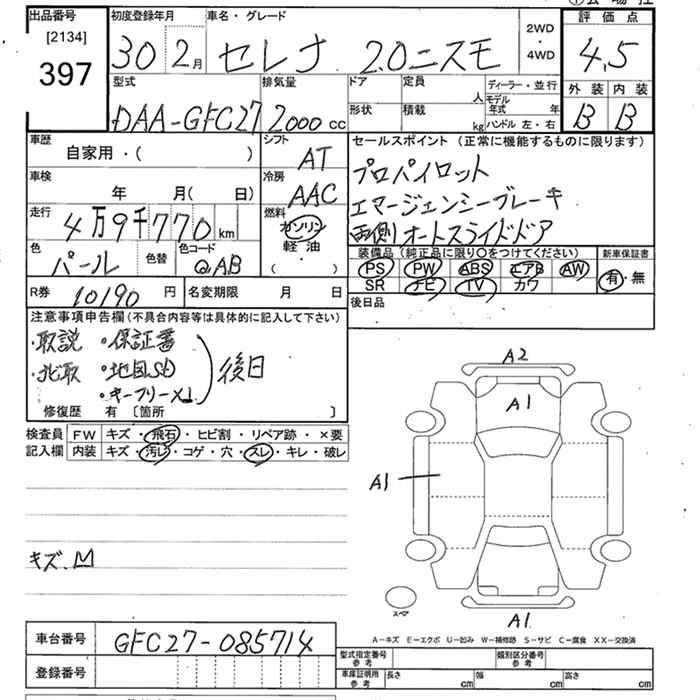 出品番号 初度登録年月 車名・グレード 評価点
[2134] 2WD・4WD
397 30 2月 セレナ 2.0ニスモ 4.5
型式 排気量 ドア 定員 人 ディーラー・並行 外装 内装
DAA-GFC27 2000cc 形状 積載 kg モデル年式 年 ハンドル 左・右 B B
車歴 シフト セールスポイント (正常に機能するものに限ります)
自家用・( ) AT プロパイロット
車検 冷房
年 月( 日) AAC エマージェンシーブレーキ
走行 燃料
4万9千770km ガソリン 両側オートスライドドア
色 色替 色コード 軽油 装備品 (純正品に限り○をつけてください) 新車保証書
パール QAB ( ) PS PW ABS エアB AW 有・無
SR ナビ TV カワ
R券 10190円 名変期限 月 日 後日品
注意事項申告欄(不具合内容等は具体的に記入して下さい)
・取説 ・保証書
・記取 ・地図SD 後日
・キーフリー×1
修復歴 有 〔箇所 〕
検査員 FW キズ・飛石・ヒビ割・リペア跡・×要
記入欄 内装 キズ・汚レ・コゲ・穴・スレ・キレ・破レ
A2
A1
A1
キズ.M
スペア
A1
A-キズ E-エクボ U-凹み W-補修跡 S-サビ C-腐食 XX-交換済
車台番号 GFC27-085714
型式指定番号 参考 類別区分番号 参考
登録番号 車庫証明用 参考 長さ cm 幅 cm 高さ cm